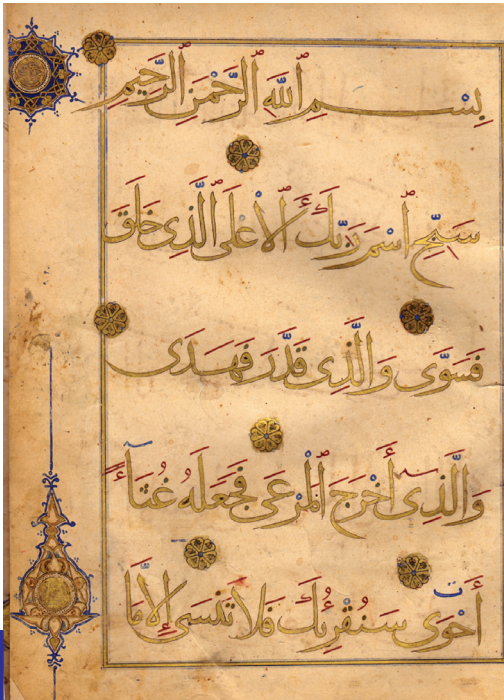 بِسْمِ ٱللَّهِ ٱلرَّحْمَٰنِ ٱلرَّحِيمِ
سَبِّحِ ٱسْمَ رَبِّكَ ٱلْأَعْلَى ٱلَّذِى خَلَقَ
فَسَوَّى وَٱلَّذِى قَدَّرَ فَهَدَى
وَٱلَّذِى أَخْرَجَ ٱلْمَرْعَى فَجَعَلَهُ غُثَاءً
أَحْوَى سَنُقْرِئُكَ فَلَا تَنسَى إِلَّا مَا